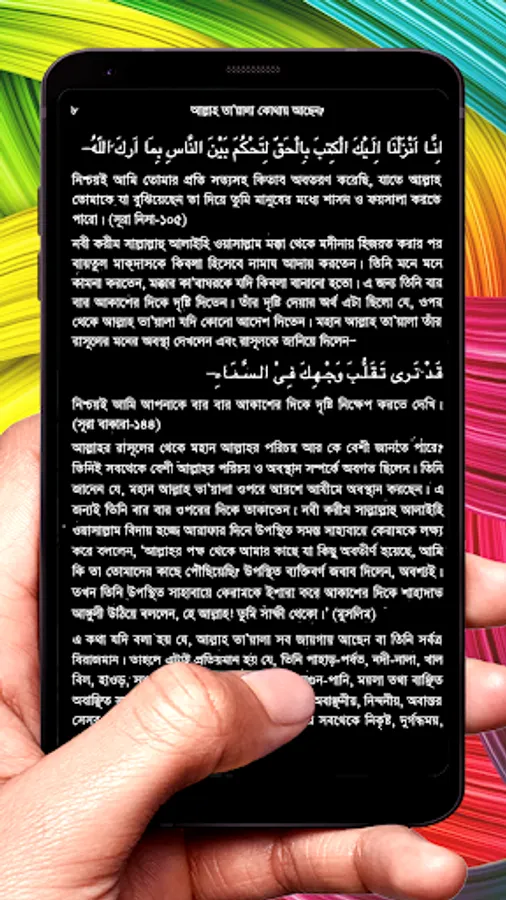 ৮ আল্লাহ তা'য়ালা কোথায় আছেন?
اِنَّا اَنْزَلْنَا اِلَيْكَ الْكِتٰبَ بِالْحَقِّ لِتَحْكُمَ بَيْنَ النَّاسِ بِمَا اَرٰكَ اللّٰهُ–
নিশ্চয়ই আমি তোমার প্রতি সত্যসহ কিতাব অবতরণ করেছি, যাতে আল্লাহ
তোমাকে যা বুঝিয়েছেন তা দিয়ে তুমি মানুষের মধ্যে শাসন ও ফয়সালা করতে
পারো। (সূরা নিসা-১০৫)
নবী করীম সাল্লাল্লাহু আলাইহি ওয়াসাল্লাম মক্কা থেকে মদীনায় হিজরত করার পর
বায়তুল মাক্‌দাসকে কিবলা হিসেবে নামায আদায় করতেন। তিনি মনে মনে
কামনা করতেন, মক্কার কা'বাঘরকে যদি কিবলা বানানো হতো। এ জন্য তিনি বার
বার আকাশের দিকে দৃষ্টি দিতেন। তাঁর দৃষ্টি দেয়ার অর্থ এটা ছিলো যে, ওপর
থেকে আল্লাহ তা'য়ালা যদি কোনো আদেশ দিতেন। মহান আল্লাহ তা'য়ালা তাঁর
রাসূলের মনের অবস্থা দেখলেন এবং রাসূলকে জানিয়ে দিলেন–
قَدْ نَرٰى تَقَلُّبَ وَجْهِكَ فِىْ السَّمَاءِ–
নিশ্চয়ই আমি আপনাকে বার বার আকাশের দিকে দৃষ্টি নিক্ষেপ করতে দেখি।
(সূরা বাকারা-১৪৪)
আল্লাহর রাসূলের থেকে মহান আল্লাহর পরিচয় আর কে বেশী জানতে পারে?
তিনিই সবথেকে বেশী আল্লাহর পরিচয় ও অবস্থান সম্পর্কে অবগত ছিলেন। তিনি
জানেন যে, মহান আল্লাহ তা'য়ালা ওপরে আরশে আযীমে অবস্থান করছেন। এ
জন্যই তিনি বার বার ওপরের দিকে তাকাতেন। নবী করীম সাল্লাল্লাহু আলাইহি
ওয়াসাল্লাম বিদায় হজ্জে আরাফার দিনে উপস্থিত সমস্ত সাহাবায়ে কেরামকে লক্ষ্য
করে বললেন, 'আল্লাহর পক্ষ থেকে আমার কাছে যা কিছু অবতীর্ণ হয়েছে, আমি
কি তা তোমাদের কাছে পৌঁছিয়েছি? উপস্থিত ব্যক্তিবর্গ জবাব দিলেন, অবশ্যই।
তখন তিনি উপস্থিত সাহাবায়ে কেরামকে ইশারা করে আকাশের দিকে শাহাদাত
আঙ্গুলী উঠিয়ে বললেন, হে আল্লাহ! তুমি সাক্ষী থেকো।' (মুসলিম)
এ কথা যদি বলা হয় যে, আল্লাহ তা'য়ালা সব জায়গায় আছেন বা তিনি সর্বত্র
বিরাজমান। তাহলে এটাই প্রতিয়মান হয় যে, তিনি পাহাড়-পর্বত, নদী-নালা, খাল
বিল, হাওড়, পানি, ময়লা তথা বাঞ্ছিত
অবাঞ্ছিত অবাঞ্ছনীয়, নিন্দনীয়, অবান্তর
সবথেকে নিকৃষ্ট, দুর্গন্ধময়,